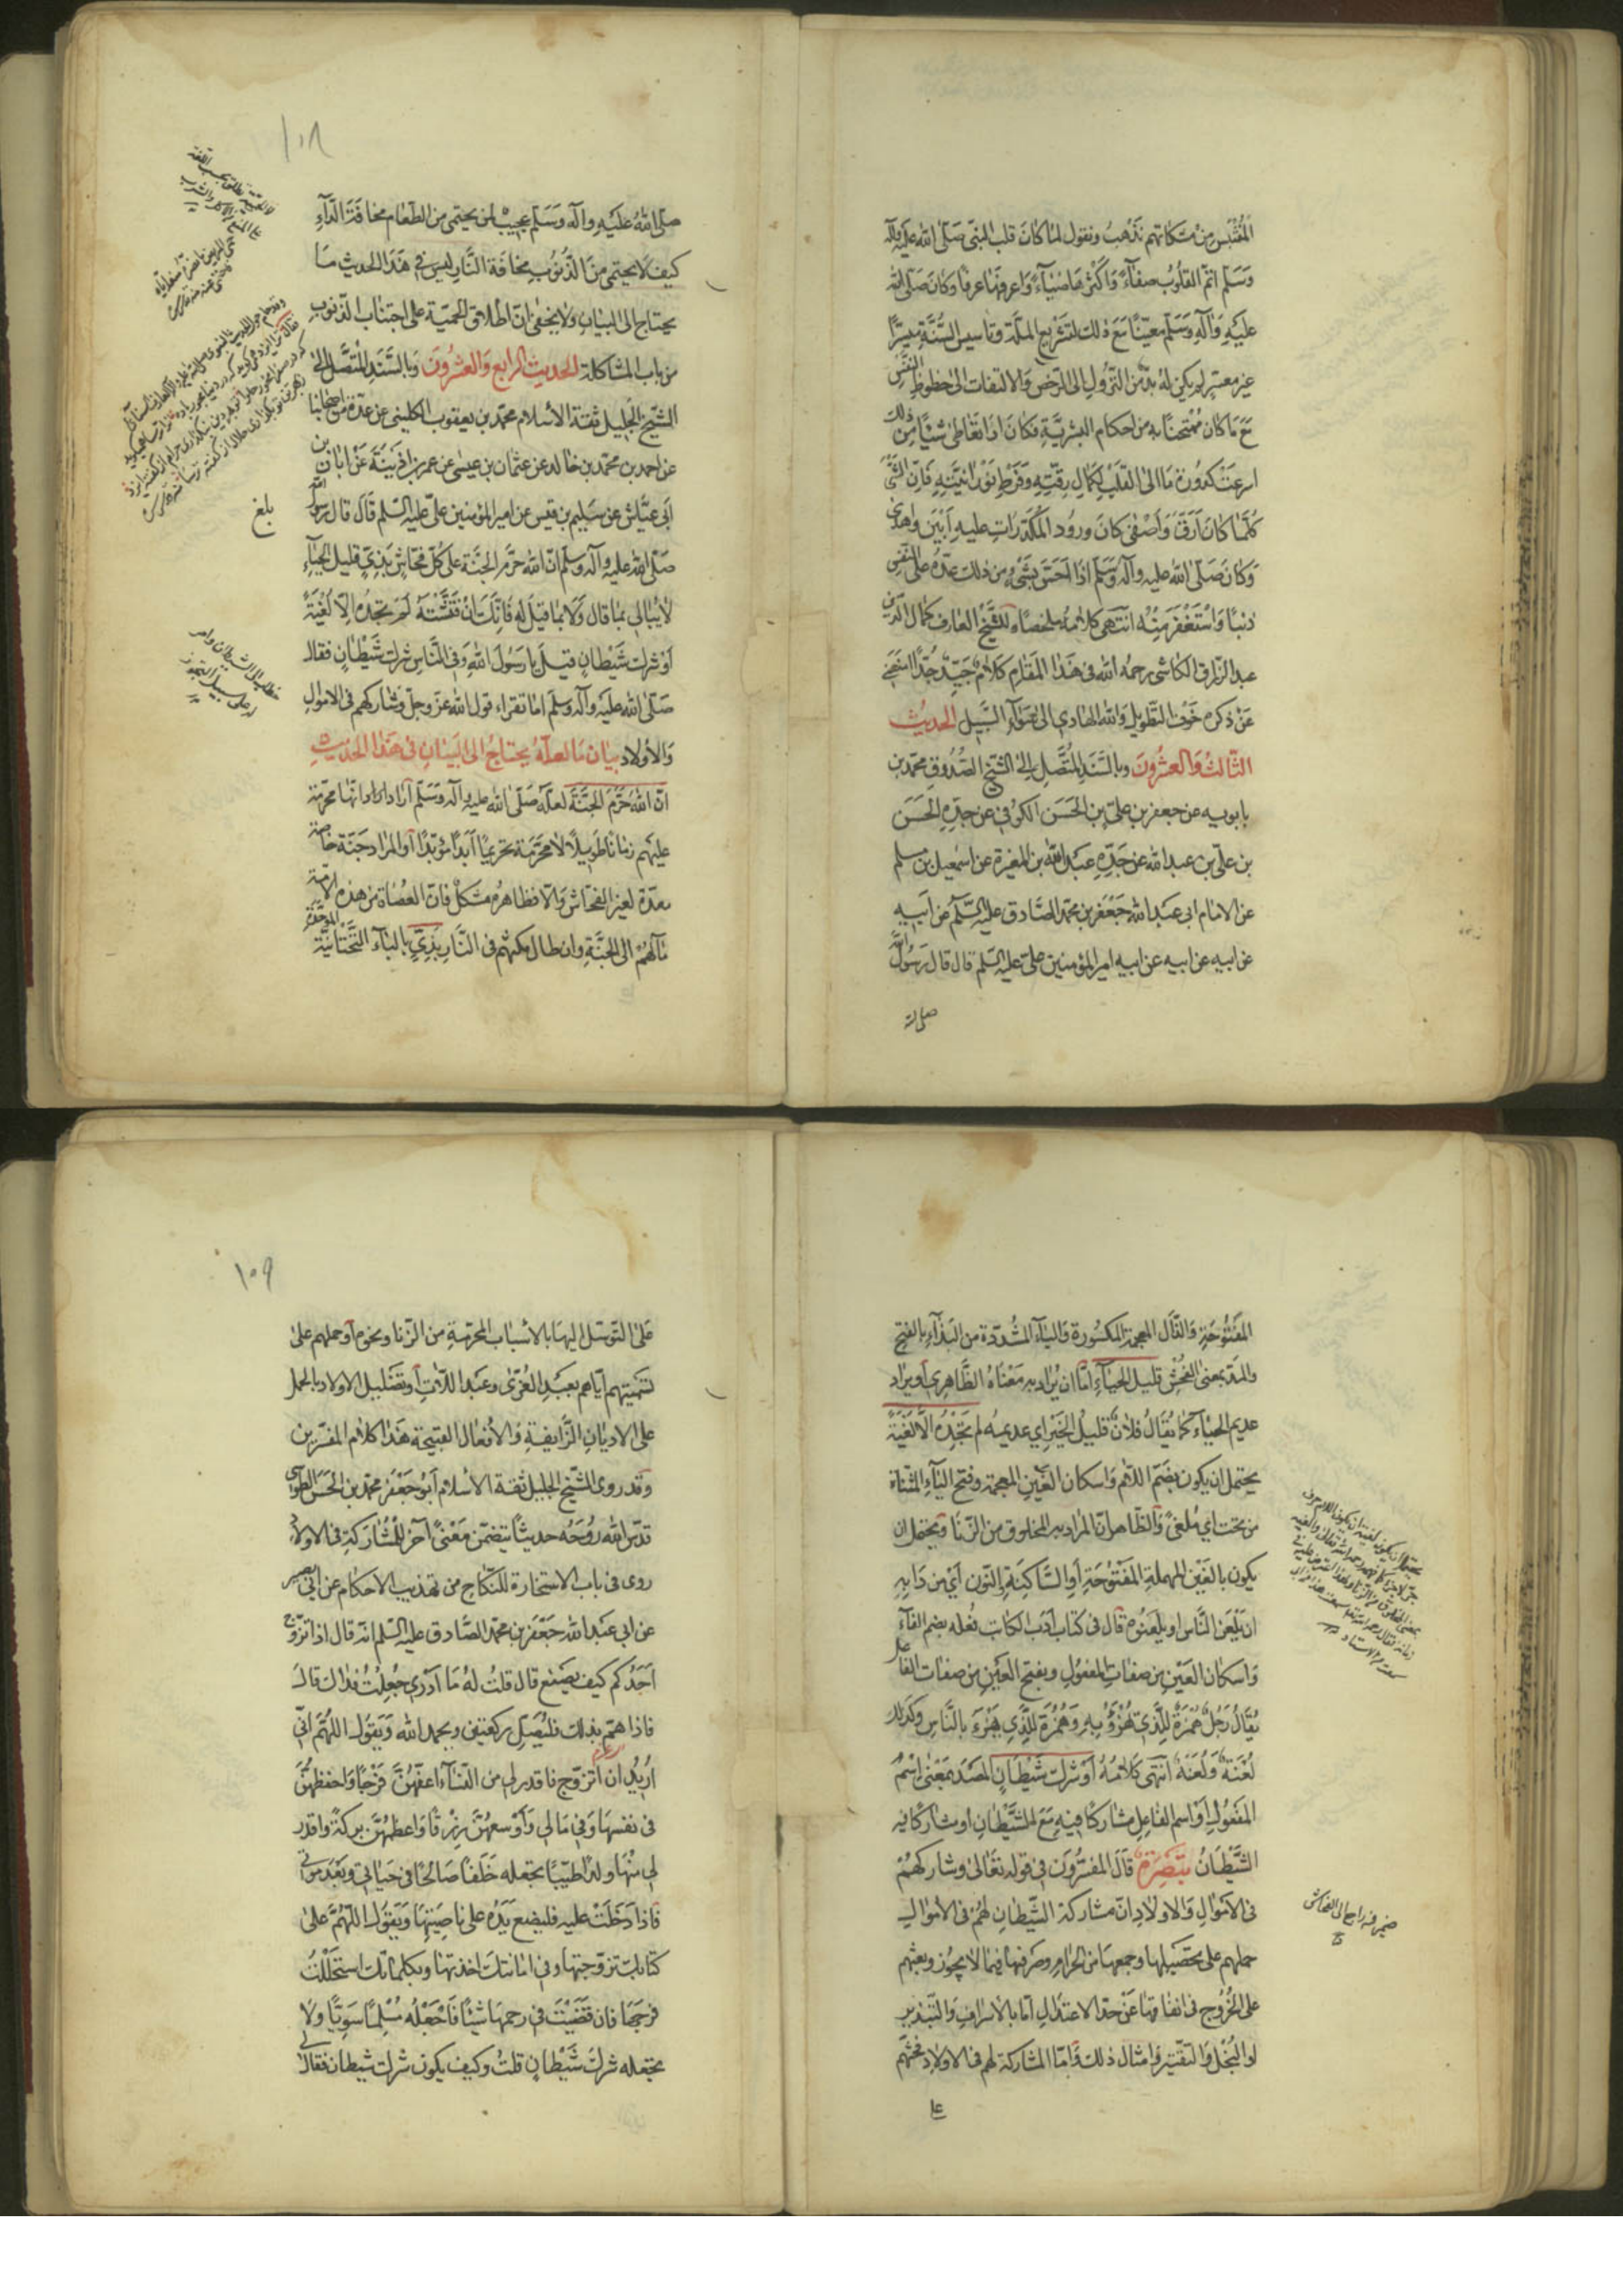 المقتبس من مشكاتهم نذهب ونقول لما كان قلب النبي صلى الله عليه وآله
وسلم اتم القلوب صفاءً واكثرها ضياءً واعرفها عرفا وكان صلى الله
عليه وآله وسلم معينا مع ذلك لتشريع الملة وتأسيس السنة ميسرًا
غير معسر لم يكن له بد من النزول الى الرخص والالتفات الى حظوظ النفس
مع ما كان ممتحنا به من احكام البشرية فكان اذا تعاطى شيئا من ذلك
اسرعت كدورة ما الى القلب لكمال رقته وفرط نورانيته فان الشئ
كلما كان ارق واصفى كان ورود المكدرات عليه ابين واهدى
وكان صلى الله عليه وآله وسلم اذا احس بشئ من ذلك عده على النفس
ذنبا واستغفر منه انتهى كلامه ملخصا وللشيخ العارف كمال الدين
عبد الرزاق الكاشى رحمه الله فى هذا المقام كلام جيد جدا
عن ذكره خوف التطويل والله الهادى الى سواء السبيل الحديث
الثالث والعشرون وبالسند المتصل الى الشيخ الصدوق محمد بن
بابويه عن جعفر بن على بن الحسن الكوفى عن جده الحسن
بن على بن عبد الله عن جده عبد الله بن المغيرة عن اسمعيل بن مسلم
عن الامام ابى عبد الله جعفر بن محمد الصادق عليه السلم عن ابيه
عن ابيه عن ابيه عن ابيه امير المؤمنين على عليه السلم قال قال رسول الله
صلى الله
١٠٨
صلى الله عليه وآله وسلم عجبت لمن يحتمى من الطعام مخافة الداء
كيف لا يحتمى من الذنوب مخافة النار ليس فى هذا الحديث ما
يحتاج الى البيان ولا يخفى ان اطلاق الحمية على اجتناب الذنوب
من باب المشاكلة الحديث الرابع والعشرون وبالسند المتصل الى
الشيخ الجليل ثقة الاسلام محمد بن يعقوب الكلينى عن عدة من اصحابنا
عن احمد بن محمد بن خالد عن عثمان بن عيسى عن عمر بن اذينة عن ابان بن
ابى عياش عن سليم بن قيس عن امير المؤمنين على عليه السلم قال قال رسول الله
صلى الله عليه وآله وسلم ان الله حرم الجنة على كل فحاش بذى قليل الحياء
لا يبالى بما قال ولا بما قيل له فانك ان فتشته لم تجده الا لغية
او شرك شيطان قيل يا رسول الله وفى الناس شرك شيطان فقال
صلى الله عليه وآله وسلم اما تقراء قول الله عز وجل وشاركهم فى الاموال
والاولاد بيان ما لعله يحتاج الى البيان فى هذا الحديث
ان الله حرم الجنة لعله صلى الله عليه وآله وسلم اراد انها محرمة
عليهم زمانا طويلا لا محرمة تحريما ابدا مؤبدا او المراد جنة خاصة
معدة لغير الفحاش والا فظاهره مشكل فان العصاة من هذه الامة
مآلهم الى الجنة وان طال مكثهم فى النار بذى بالباء التحتانية الموحدة
بلغ
المفتوحة والذال المعجمة المكسورة والياء المشددة من البذاء بالفتح
والمد بمعنى الفحش قليل الحياء اما ان يراد به معناه الظاهرى او يراد
عديم الحياء كما يقال فلان قليل الخير اى عديمه لم تجده الا لغية
يحتمل ان يكون بضم اللام واسكان الغين المعجمة وفتح الياء المثناة
من تحت اى ملغى والظاهر ان المراد به المخلوق من الزنا ويحتمل ان
يكون بالعين المهملة المفتوحة او الساكنة والنون اى من دابه
ان يلعن الناس او يلعنوه قال فى كتاب ادب الكاتب فعله بضم الفاء
واسكان العين من صفات المفعول وبفتح العين من صفات الفاعل
يقال رجل همزة للذى يهزؤ به وهمزة للذى يهزء بالناس وكذلك
لعنة ولعنة انتهى كلامه او شرك شيطان المصدر بمعنى اسم
المفعول او اسم الفاعل مشاركا فيه مع الشيطان او مشاركا فيه
الشيطان تبصرة قال المفسرون فى قوله تعالى وشاركهم
فى الاموال والاولاد ان مشاركة الشيطان لهم فى الاموال
حملهم على تحصيلها وجمعها من الحرام وصرفها فيما لا يجوز وبعثهم
على الخروج فى انفاقها عن حد الاعتدال اما بالاسراف والتبذير
او البخل والتقتير وامثال ذلك واما المشاركة لهم فى الاولاد فحثهم
على
ضمير فيه راجع الى الفحاش
١٠٩
على التوسل اليها بالاسباب المحرمة من الزنا ونحوه او حملهم على
تسميتهم اياهم بعبد العزى وعبد اللات او تضليل الاولاد بالحمل
على الاديان الزايفة والافعال القبيحة هذا كلام المفسرين
وقد روى الشيخ الجليل ثقة الاسلام ابو جعفر محمد بن الحسن الطوسى
قدس الله روحه حديثا يتضمن معنى آخر للمشاركة فى الاولاد
روى فى باب الاستخارة للنكاح من تهذيب الاحكام عن ابى بصير
عن ابى عبد الله جعفر بن محمد الصادق عليه السلم انه قال اذا تزوج
احدكم كيف يصنع قال قلت له ما ادرى جعلت فداك قال
فاذا هم بذلك فليصل ركعتين ويحمد الله ويقول اللهم انى
اريد ان اتزوج فاقدر لى من النساء اعفهن فرجا واحفظهن
فى نفسها وفى مالى واوسعهن رزقا واعظمهن بركة واقدر
لى منها ولدا طيبا تجعله خلفا صالحا فى حياتى وبعد موتى
فاذا دخلت عليه فليضع يده على ناصيتها ويقول اللهم على
كتابك تزوجتها وفى امانتك اخذتها وبكلماتك استحللت
فرجها فان قضيت فى رحمها شيئا فاجعله مسلما سويا ولا
تجعله شرك شيطان قلت وكيف يكون شرك شيطان فقال لى